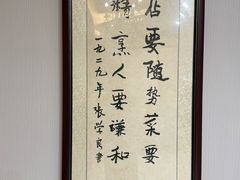 佔要随势菜要
精烹人要謙和
一九二九年張学良書